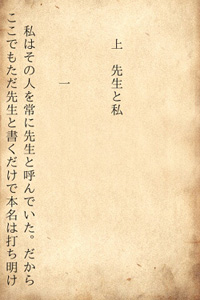 上　先生と私
一
私はその人を常に先生と呼んでいた。だから
ここでもただ先生と書くだけで本名は打ち明け